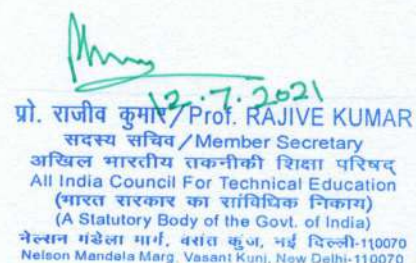 12.7.2021
प्रो. राजीव कुमार/Prof. RAJIVE KUMAR
सदस्य सचिव/Member Secretary
अखिल भारतीय तकनीकी शिक्षा परिषद्
All India Council For Technical Education
(भारत सरकार का सांविधिक निकाय)
(A Statutory Body of the Govt. of India)
नेल्सन मंडेला मार्ग, वसंत कुंज, नई दिल्ली-110070
Nelson Mandela Marg, Vasant Kunj, New Delhi-110070